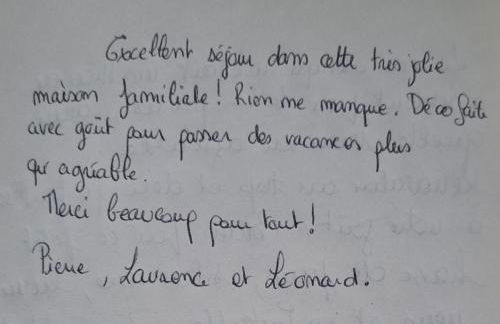 Excellent séjour dans cette très jolie
maison familiale ! Rien ne manque. Déco faite
avec goût pour passer des vacances plus
qu'agréable.
Merci beaucoup pour tout !
Pierre, Laurence et Léonard.